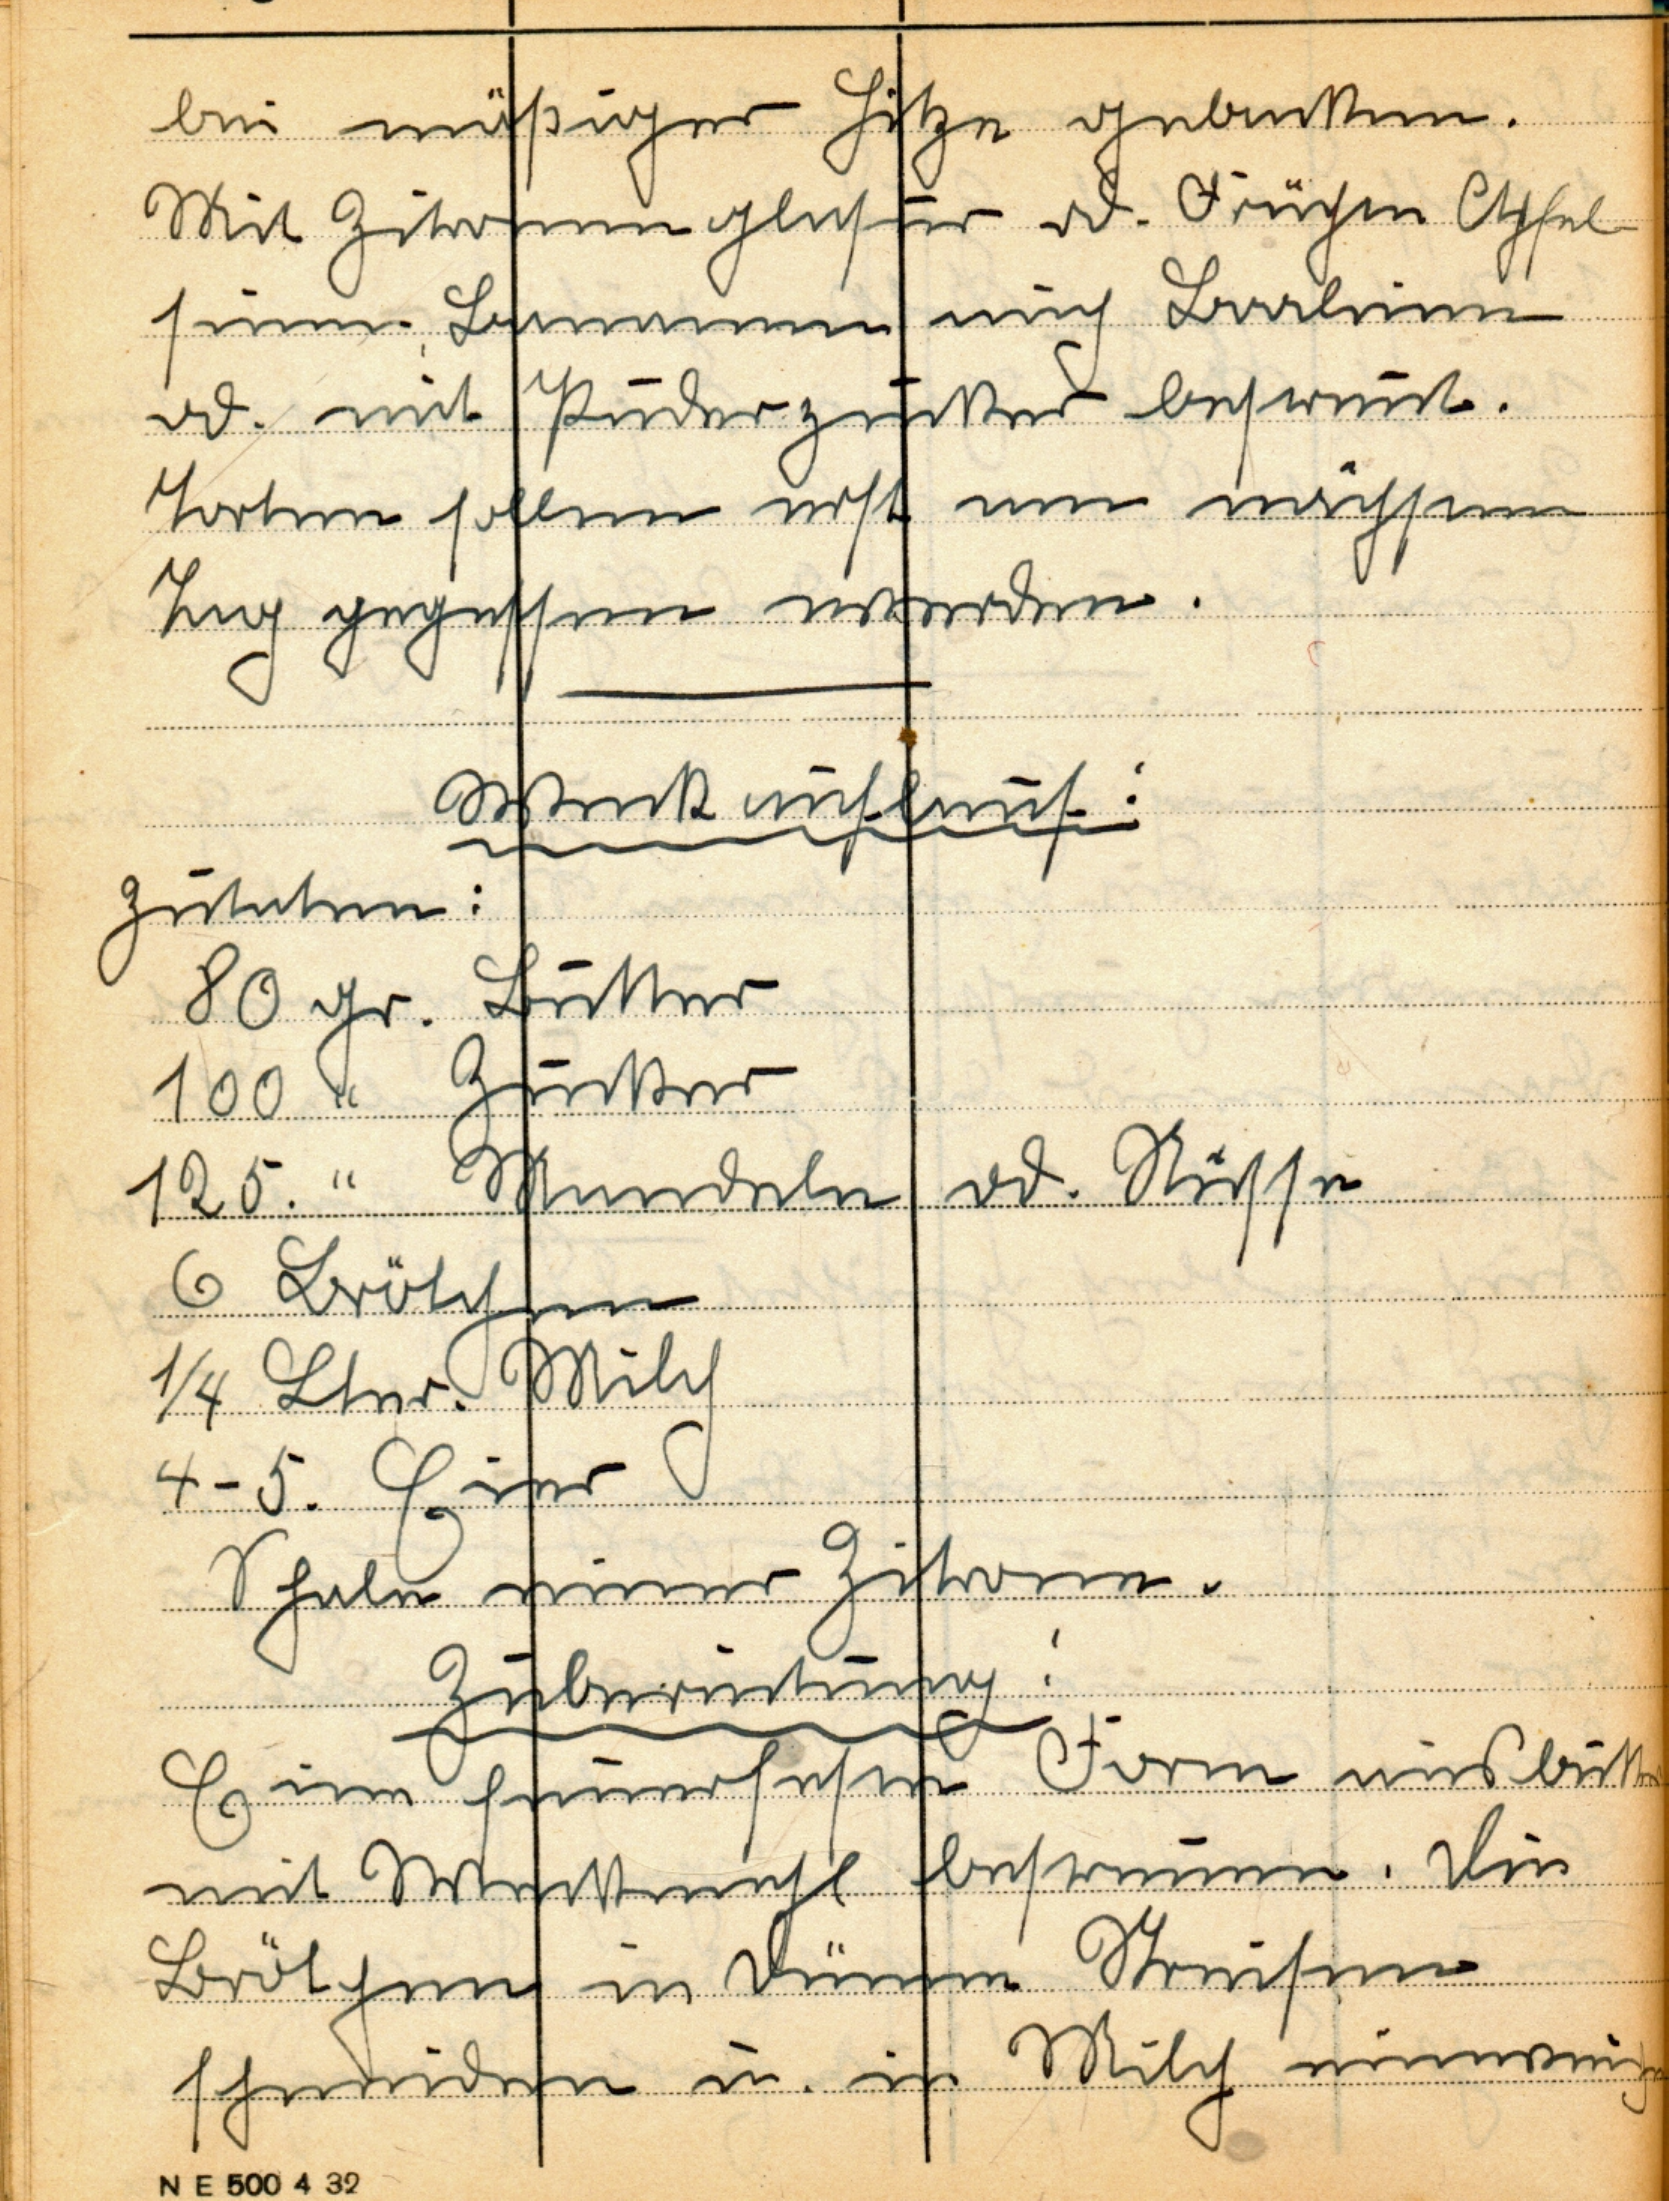 bei mäßiger Hitze gebacken.
Mit Zitronenglasur od. Früchen Apfel-
sinen, Bananen auch Pralinen
od. mit Puderzucker bestreut.
Torten sollen erst am nächsten
Tag gegessen werden.
Weckauflauf:
Zutaten:
80 gr. Butter
100 " Zucker
125. " Mandeln od. Nüsse
6 Brötchen
1/4 Lter. Milch
4-5. Eier
Schale einer Zitrone.
Zubereitung:
Eine feuerfeste Form ausbutt
mit Weckmehl bestreuen. Die
Brötchen in dünne Streifen
schneiden u. in Milch einweichen
N E 500 4 32